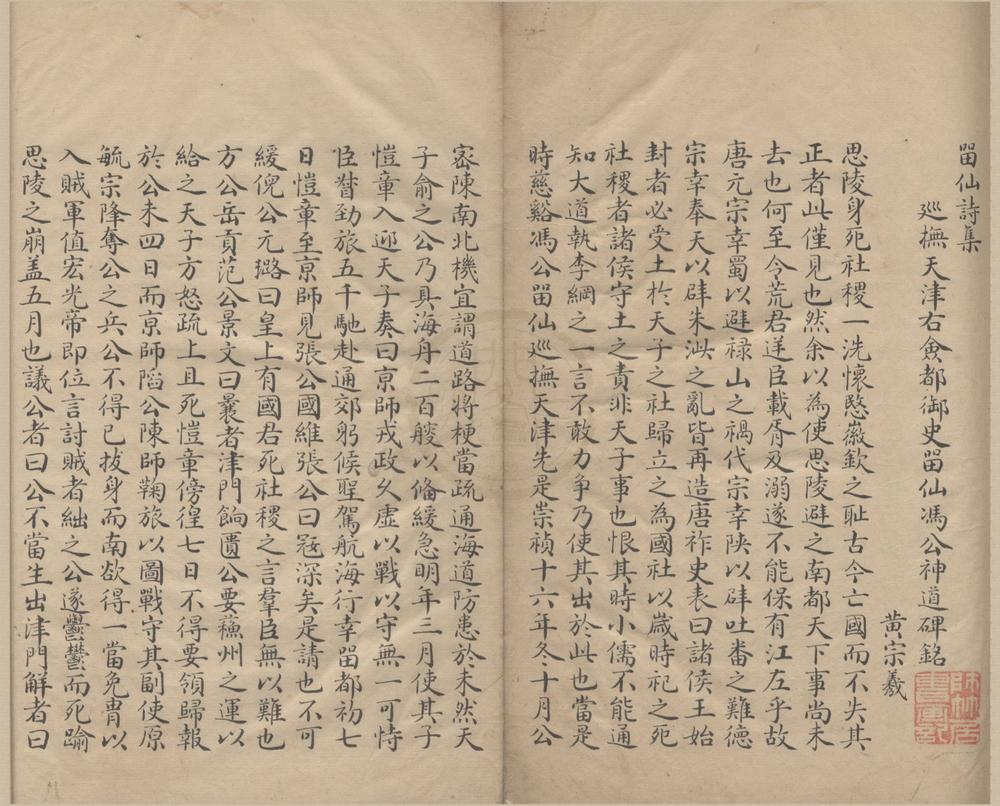 畱仙詩集
廵撫天津右僉都御史畱仙馮公神道碑銘
黃宗羲
思陵身死社稷一洗懷愍徽欽之耻古今亡國而不失其
正者此僅見也然余以為使思陵避之南都天下事尚未
去也何至令荒君逆臣載胥及溺遂不能保有江左乎故
唐元宗幸蜀以避祿山之禍代宗幸陝以辟吐番之難德
宗幸奉天以辟朱泚之亂皆再造唐祚史表曰諸侯王始
封者必受土於天子之社歸立之為國社以歲時祀之死
社稷者諸侯守土之責非天子事也恨其時小儒不能通
知大道執李綱之一言不敢力爭乃使其出於此也當是
時慈谿馮公畱仙廵撫天津先是崇禎十六年冬十月公
密陳南北機宜謂道路將梗當疏通海道防患於未然天
子俞之公乃具海舟二百艘以俻緩急明年三月使其子
愷章入迎天子奏曰京師戎政乆虛以戰以守無一可恃
臣督勁旅五千馳赴通郊躬候聖駕航海行幸畱都初七
日愷章至京師見張公國維張公曰寇深矣是請也不可
緩倪公元璐曰皇上有國君死社稷之言羣臣無以難也
方公岳貢范公景文曰曩者津門餉匱公要蘓州之運以
給之天子方怒疏上且死愷章傍徨七日不得要領歸報
於公未四日而京師陷公陳師鞠旅以圖戰守其副使原
毓宗降奪公之兵公不得已拔身而南欲得一當免胄以
入賊軍值宏光帝即位言討賊者絀之公遂鬱鬱而死踰
思陵之崩盖五月也議公者曰公不當生出津門解者曰